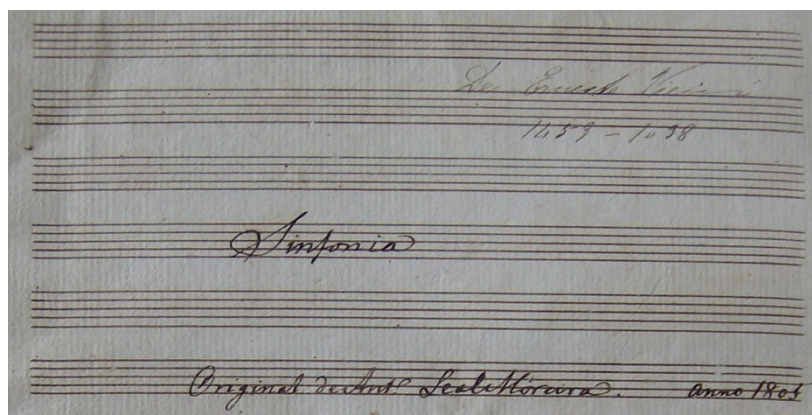 De Ernesto Vieira
Sinfonia
Original de Antº Leal Moreira. anno 1803